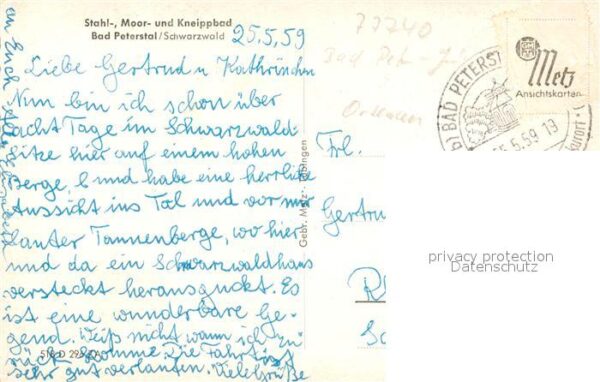 Stahl-, Moor- und Kneippbad
Bad Peterstal/Schwarzwald
25.5.59
77740
Bad Pet -
Liebe Gertrud u Kathrinchen
Nun bin ich schon über
acht Tage im Schwarzwald
sitze hier auf einem hohen
Berge, und habe eine herrliche
Aussicht ins Tal und vor mir
lauter Tannenberge, wo hier
und da ein Schwarzwaldhaus
versteckt herausguckt. Es
ist eine wunderbare Ge-
gend. Weiß nicht wann ich zu
rück komme. Die Fahrt ist
sehr gut verlaufen. Viele Grüße
an Euch
Gebr. Metz · Tübingen
Frl.
Gertrud
R
Metz
Ansichtskarten
BAD PETERST
5.5.59.13
Kurort
privacy protection
Datenschutz